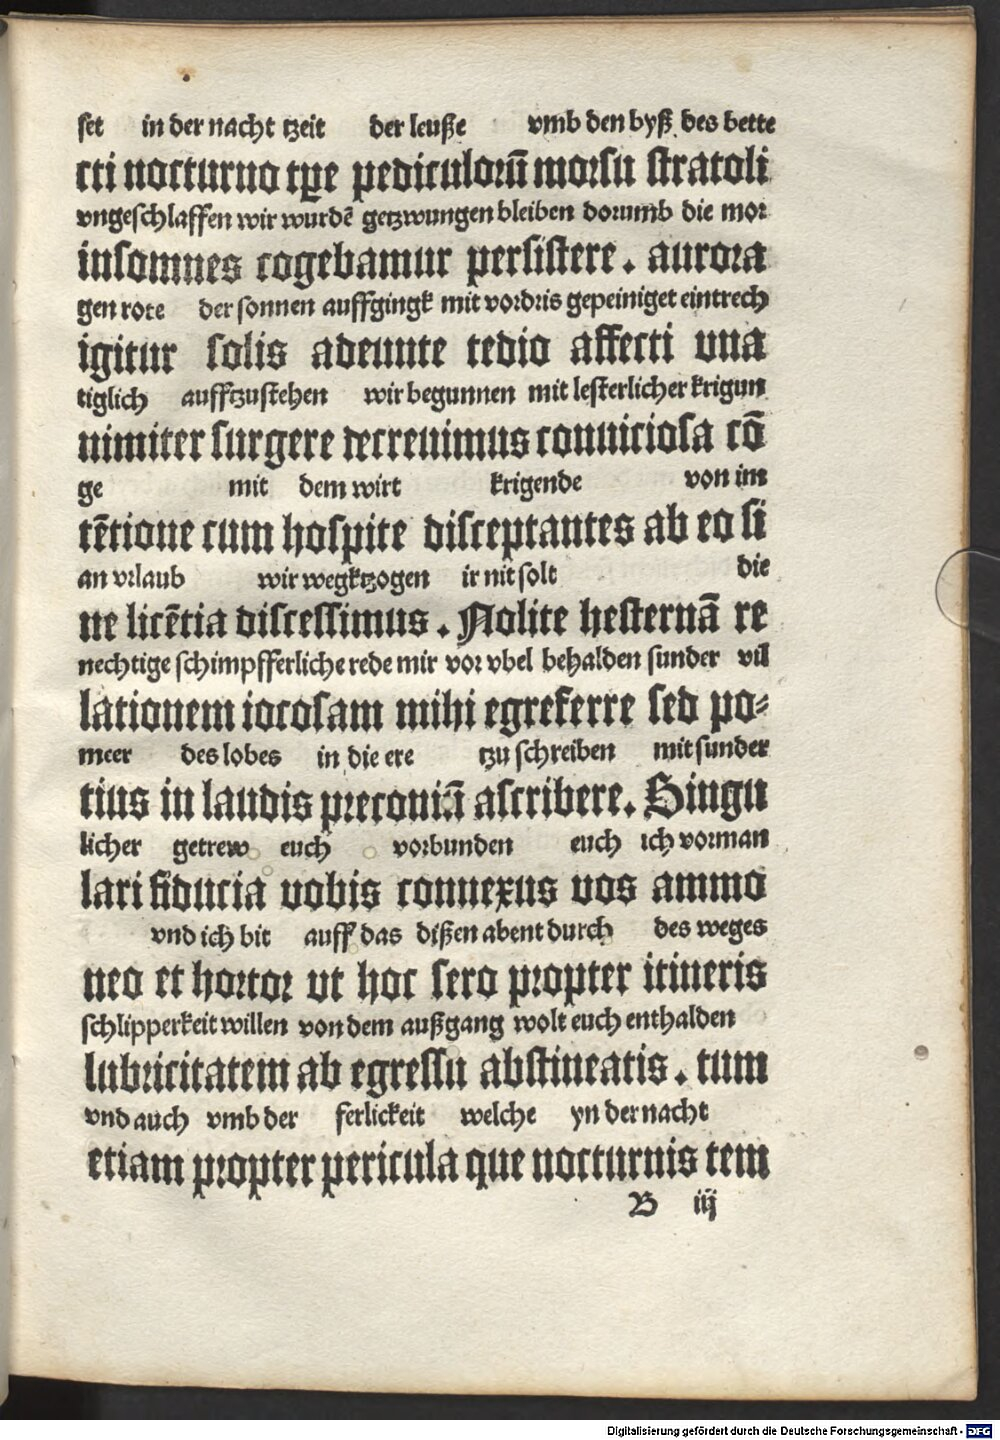 set in der nacht tzeit der leuße vmb den byß des bette
cti nocturno tꝑe pediculorū morsu stratoli
vngeschlaffen wir wurdē getzwungen bleiben dorumb die mor
insomnes cogebamur persistere. aurora
gen rote der sonnen auffgingk mit vordris gepeiniget eintrech
igitur solis adeunte tedio affecti una
tiglich aufftzustehen wir begunnen mit lesterlicher krigun
nimiter surgere decreuimus conuiciosa cō
ge mit dem wirt krigende von im
tētione cum hospite disceptantes ab eo si
an vrlaub wir wegktzogen ir nit solt die
ne licētia discessimus. Nolite hesternā re
nechtige schimpfferliche rede mir vor vbel behalden sunder vil
lationem iocosam mihi egreferre sed po⸗
meer des lobes in die ere tzu schreiben mit sunder
tius in laudis preconiū ascribere. Singu
licher getrew euch vorbunden euch ich vorman
lari fiducia vobis connexus vos ammo
vnd ich bit auff das dißen abent durch des weges
neo et hortor ut hoc sero propter itineris
schlipperkeit willen von dem außgang wolt euch enthalden
lubricitatem ab egressu abstineatis. tum
vnd auch vmb der ferlickeit welche yn der nacht
etiam propter pericula que nocturnis tem
B iij
Digitalisierung gefördert durch die Deutsche Forschungsgemeinschaft - DFG